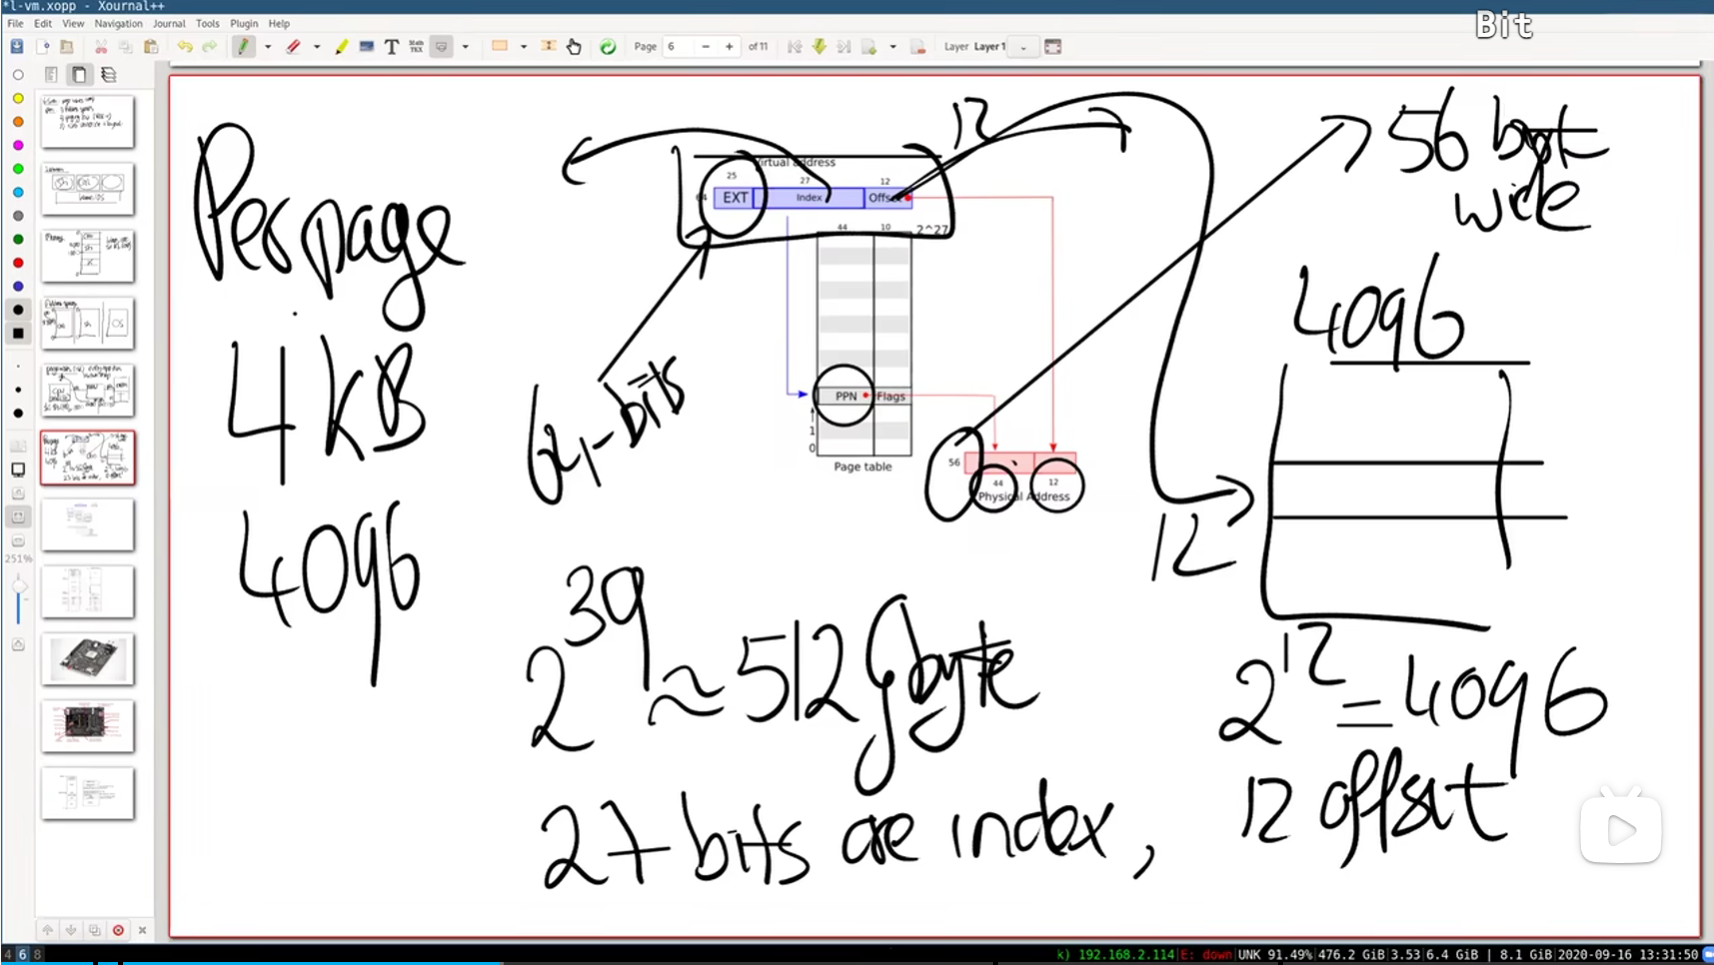 *l-vm.xopp - Xournal++
Bit
File Edit View Navigation Journal Tools Plugin Help
Page 6 of 11 Layer Layer 1
251%
Per page
4 kB
4096
Virtual address
25 27 12
64 EXT Index Offset
44 10 2^27
PPN Flags
1
0
Page table
56
44 12
Physical Address
64-bits
12
56 byte
wide
4096
12
2^12 = 4096
12 offset
2^39 ≈ 512 gbyte
27 bits are index,
4 6 8
k) 192.168.2.114 E: down UNK 91.49% 476.2 GiB 3.53 6.4 GiB | 8.1 GiB 2020-09-16 13:31:50